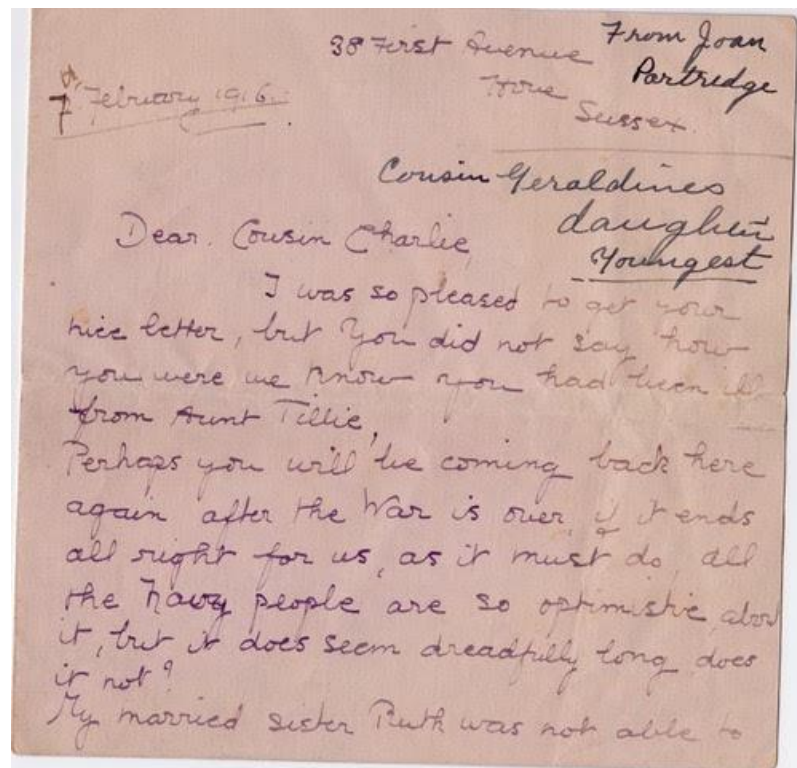 38 First Avenue
Hove
Sussex.
From Joan
Partridge
7th February 1916.
Cousin Geraldines
daughter
Youngest
Dear. Cousin Charlie,
I was so pleased to get your
nice letter, but you did not say how
you were we know you had been ill
from Aunt Tillie,
Perhaps you will be coming back here
again after the War is over, if it ends
all right for us, as it must do, all
the Navy people are so optimistic about
it, but it does seem dreadfully long does
it not?
My married sister Ruth was not able to